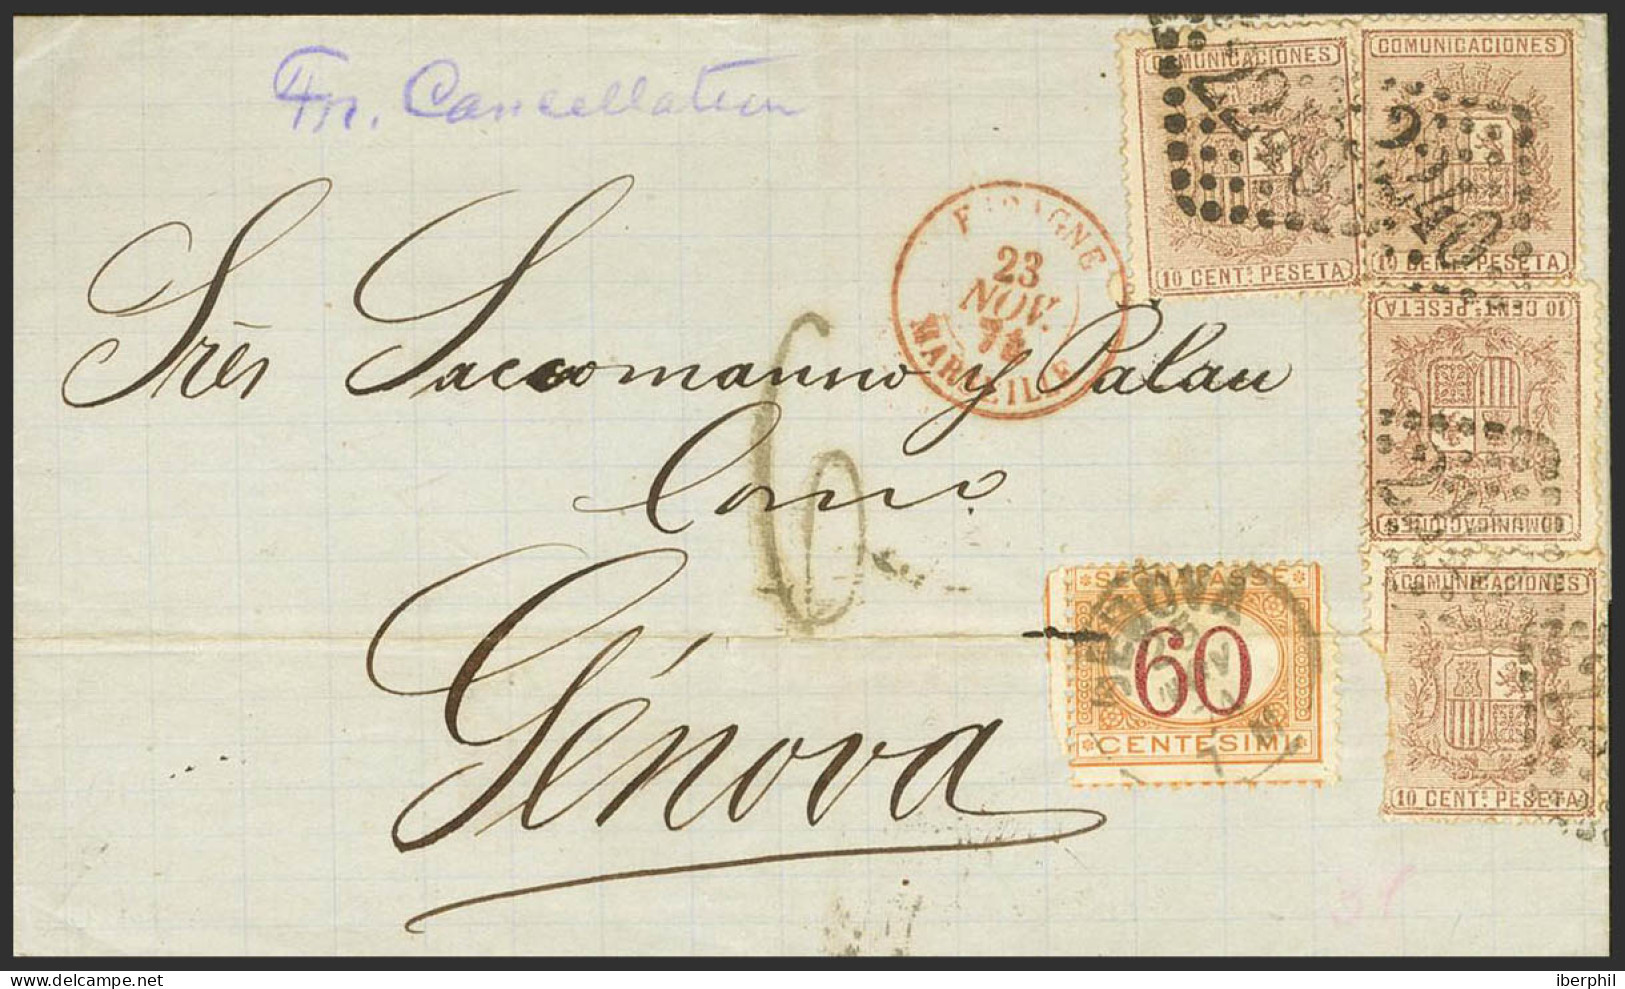 Fr. Cancellation
COMUNICACIONES
COMUNICACIONES
10 CENT.ˢ PESETA
10 CENT.ˢ PESETA
ESPAGNE
23
NOV.
MARSEILLE
Srès Saccomanno y Palau
Como
6
Génova
10 CENT.ˢ PESETA
COMUNICACIONES
SEGNATASSE
GENOVA
60
CENTESIMI
COMUNICACIONES
10 CENT.ˢ PESETA
iberphil